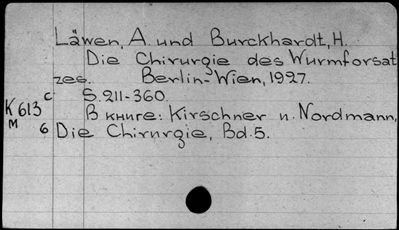 Läwen, A. und Burckhardt, H.
Die Chirurgie des Wurmforsat
zes. Berlin-Wien, 1927.
c S. 211-360.
K 613 В книге: Kirschner u. Nordmann,
м 6 Die Chirurgie, Bd. 5.